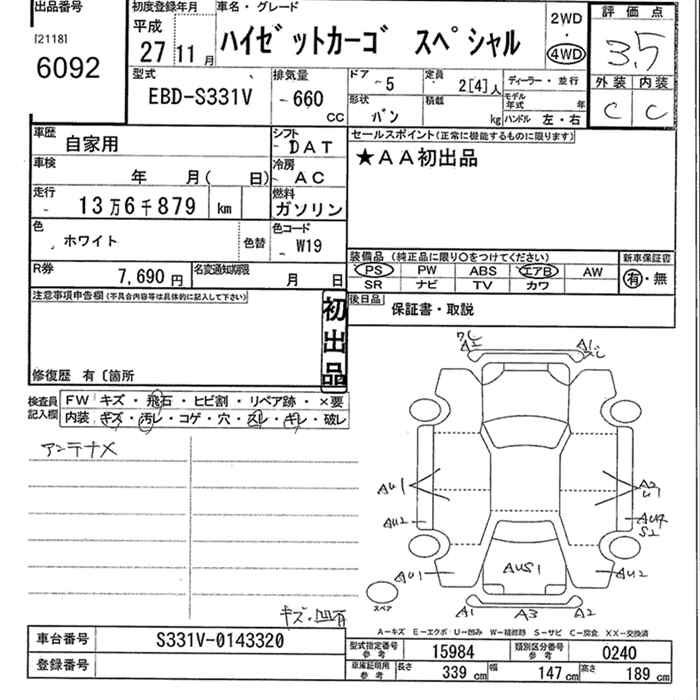 出品番号
[2118]
6092
初度登録年月
平成
27 11月
車名・グレード
ハイゼットカーゴ スペシャル
2WD
・
4WD
評価点
3.5
外装 内装
C C
型式
EBD-S331V
排気量
- 660
CC
ドア
- 5
定員
2[4]人
ディーラー・並行
形状
バン
積載
kg
モデル年式 年
ハンドル 左・右
車歴
自家用
シフト
- DAT
車検
年 月( 日)
冷房
- AC
走行
- 13万6千879 km
燃料
ガソリン
色
- ホワイト
色替
色コード
- W19
R券
7,690 円
名変通知期限
月 日
セールスポイント(正常に機能するものに限ります)
★AA初出品
装備品 (純正品に限り○をつけてください)
PS PW ABS エアB AW
SR ナビ TV カワ
新車保証書
有・無
後日品
保証書・取説
注意事項申告欄(不具合内容等は具体的に記入して下さい)
初出品
修復歴 有〔箇所
検査員記入欄
FW キズ・飛石・ヒビ割・リペア跡・×要
内装 キズ・汚レ・コゲ・穴・スレ・キレ・破レ
アンテナX
A2
A1
AU1
A2
U1
AU2
AU4
S2
AU1
AUS1
AU2
スペア
A1 A3 A2
キズ・凹有
A-キズ E-エクボ U-凹み W-補修跡 S-サビ C-腐食 XX-交換済
車台番号
S331V-0143320
登録番号
型式指定番号 参考
15984
類別区分番号 参考
0240
車庫証明用 参考
長さ 339 cm
幅 147 cm
高さ 189 cm